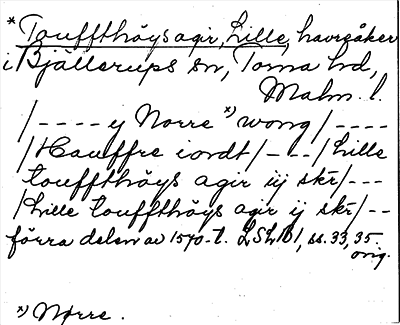 *Touffthöys agir, Lille, havreåker
i Bjällerups sn, Torna hd,
Malm. l.
/---- y Norre x) wong/----
/Hauffre iordt/---/Lille
touffthöys agir iij skr/---
/Lille touffthöys agir ij skr/--
förra delen av 1570-t. LSLIDI, ss. 33, 35.
orig.
x) Nørre.